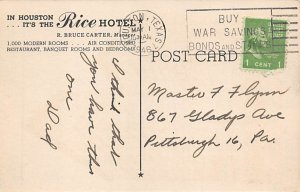 IN HOUSTON
...IT'S THE Rice HOTEL
R. BRUCE CARTER,
1,000 MODERN ROOMS . . . AIR CONDITIONED
RESTAURANT, BANQUET ROOMS AND BEDROOMS
HOUSTON, TEXAS
MAY
1946
BUY
WAR SAVINGS
BONDS AND STAMPS
1 CENT 1
POST CARD
I don't that
you have this
one
Dad
Master F Flynn
867 Gladys Ave
Pittsburgh 16, Pa.